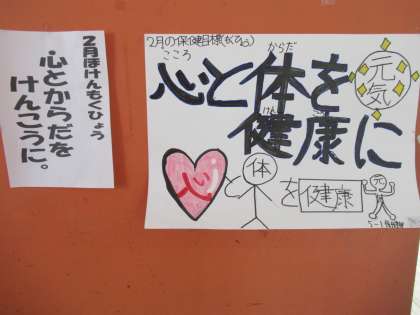 2月ほけんもくひょう
心とからだを
けんこうに。
2月の保健目標(もくひょう)
こころ からだ
心と体を
けん こう
健康に
元気
心と体を健康元
5-1